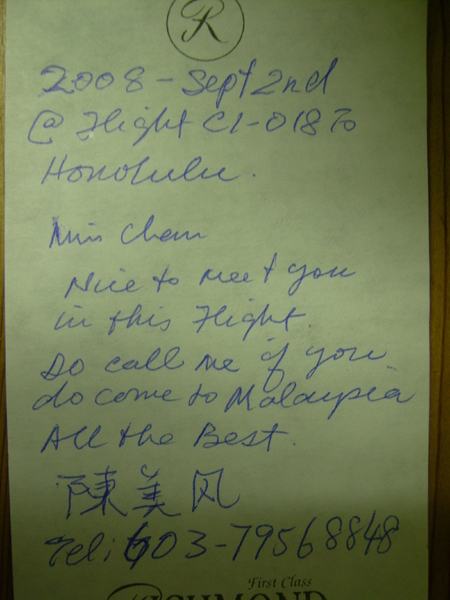 R
2008 - Sept 2nd
@ Flight CI-018 To
Honolulu.
Miss Chan
Nice to meet you
in this Flight.
Do call me if you
do come to Malaysia
All the Best.
陳美风
Tel: 603-79568848
First Class
RICHMOND